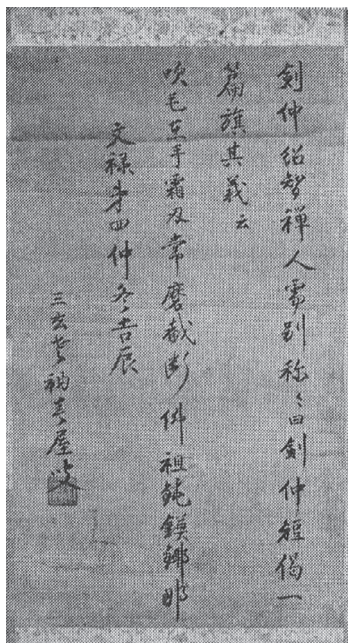 劍仲紹智禅人需別称〻曰劍仲短偈一
篇旌其義云
吹毛在手霜刃常磨截断佛祖鈍鏌鎁耶
文禄第四仲冬吉辰
三玄老衲春屋